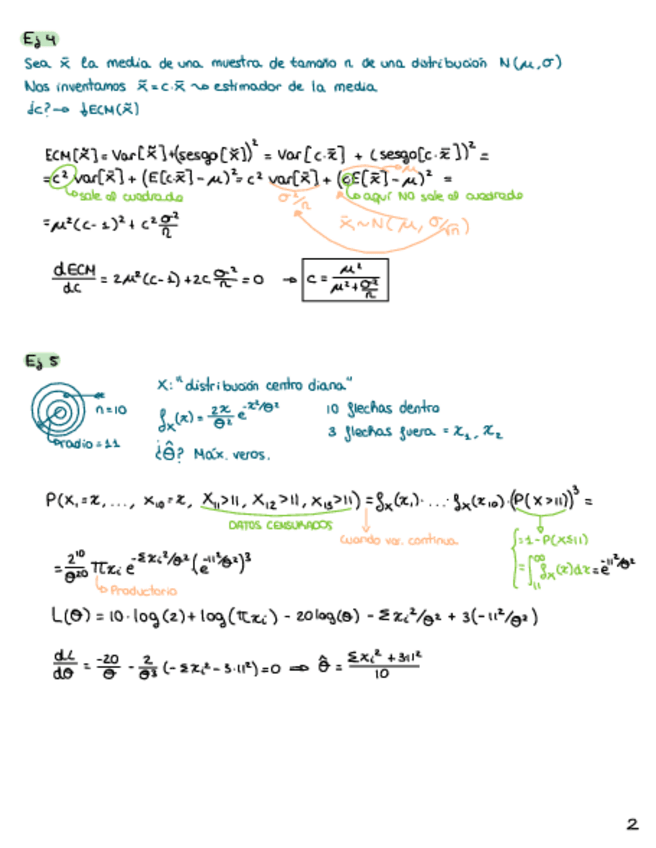 Ej 4
Sea x̄ la media de una muestra de tamaño n de una distribución N(μ,σ)
Nos inventamos x̃ = c·x̄ ⤳ estimador de la media
¿c? → ↓ECM(x̃)
ECM[x̃] = Var[x̃]+(sesgo[x̃])² = Var[c·x̄] + (sesgo[c·x̄])² =
= c² var[x̄] + (E[c·x̄] - μ)² = c² var[x̄] + (cE[x̄] - μ)² =
sale al cuadrado σ²/n aquí NO sale al cuadrado
= μ²(c-1)² + c² σ²/n x̄ ~ N(μ, σ/√n)
dECM/dc = 2μ²(c-1) + 2c σ²/n = 0 → c = μ²/(μ² + σ²/n)
Ej 5
X: "distribución centro diana"
n=10 fₓ(x) = 2x/θ² e^(-x²/θ²) 10 flechas dentro
radio = 11 3 flechas fuera = x₁, x₂
¿θ̂? Máx. veros.
P(X₁=x, ..., x₁₀=x, X₁₁>11, X₁₂>11, x₁₃>11) = fₓ(x₁)· ... · fₓ(x₁₀)·(P(X>11))³ =
DATOS CENSURADOS
Cuando var. continua.
= 1-P(X≤11)
= ∫₁₁^∞ fₓ(x)dx = e^(-11²/θ²)
= 2¹⁰/θ²⁰ πxᵢ e^(-Σxᵢ²/θ²) (e^(-11²/θ²))³
Productorio
L(θ) = 10·log(2) + log(πxᵢ) - 20log(θ) - Σxᵢ²/θ² + 3(-11²/θ²)
dL/dθ = -20/θ - 2/θ³ (-Σxᵢ² - 3·11²) = 0 ⇒ θ̂ = (Σxᵢ² + 3·11²)/10
2